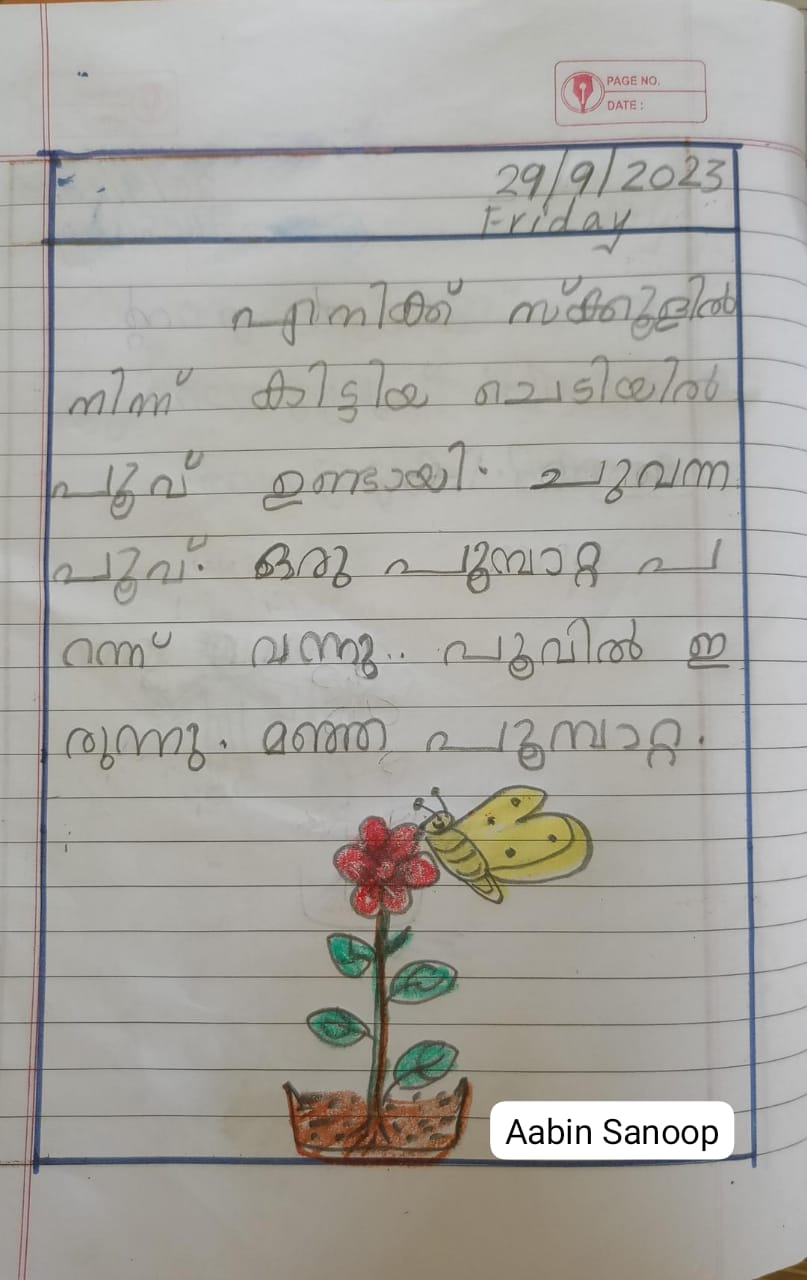 PAGE NO.
DATE :
29/9/2023
Friday
എനിക്ക് സ്ക്കൂളിൽ
നിന്ന് കിട്ടിയ ചെടിയിൽ
പൂവ് ഉണ്ടായി. ചുവന്ന
പൂവ്. ഒരു പൂമ്പാറ്റ പ
റന്ന് വന്നു.. പൂവിൽ ഇ
രുന്നു. മഞ്ഞ പൂമ്പാറ്റ.
Aabin Sanoop